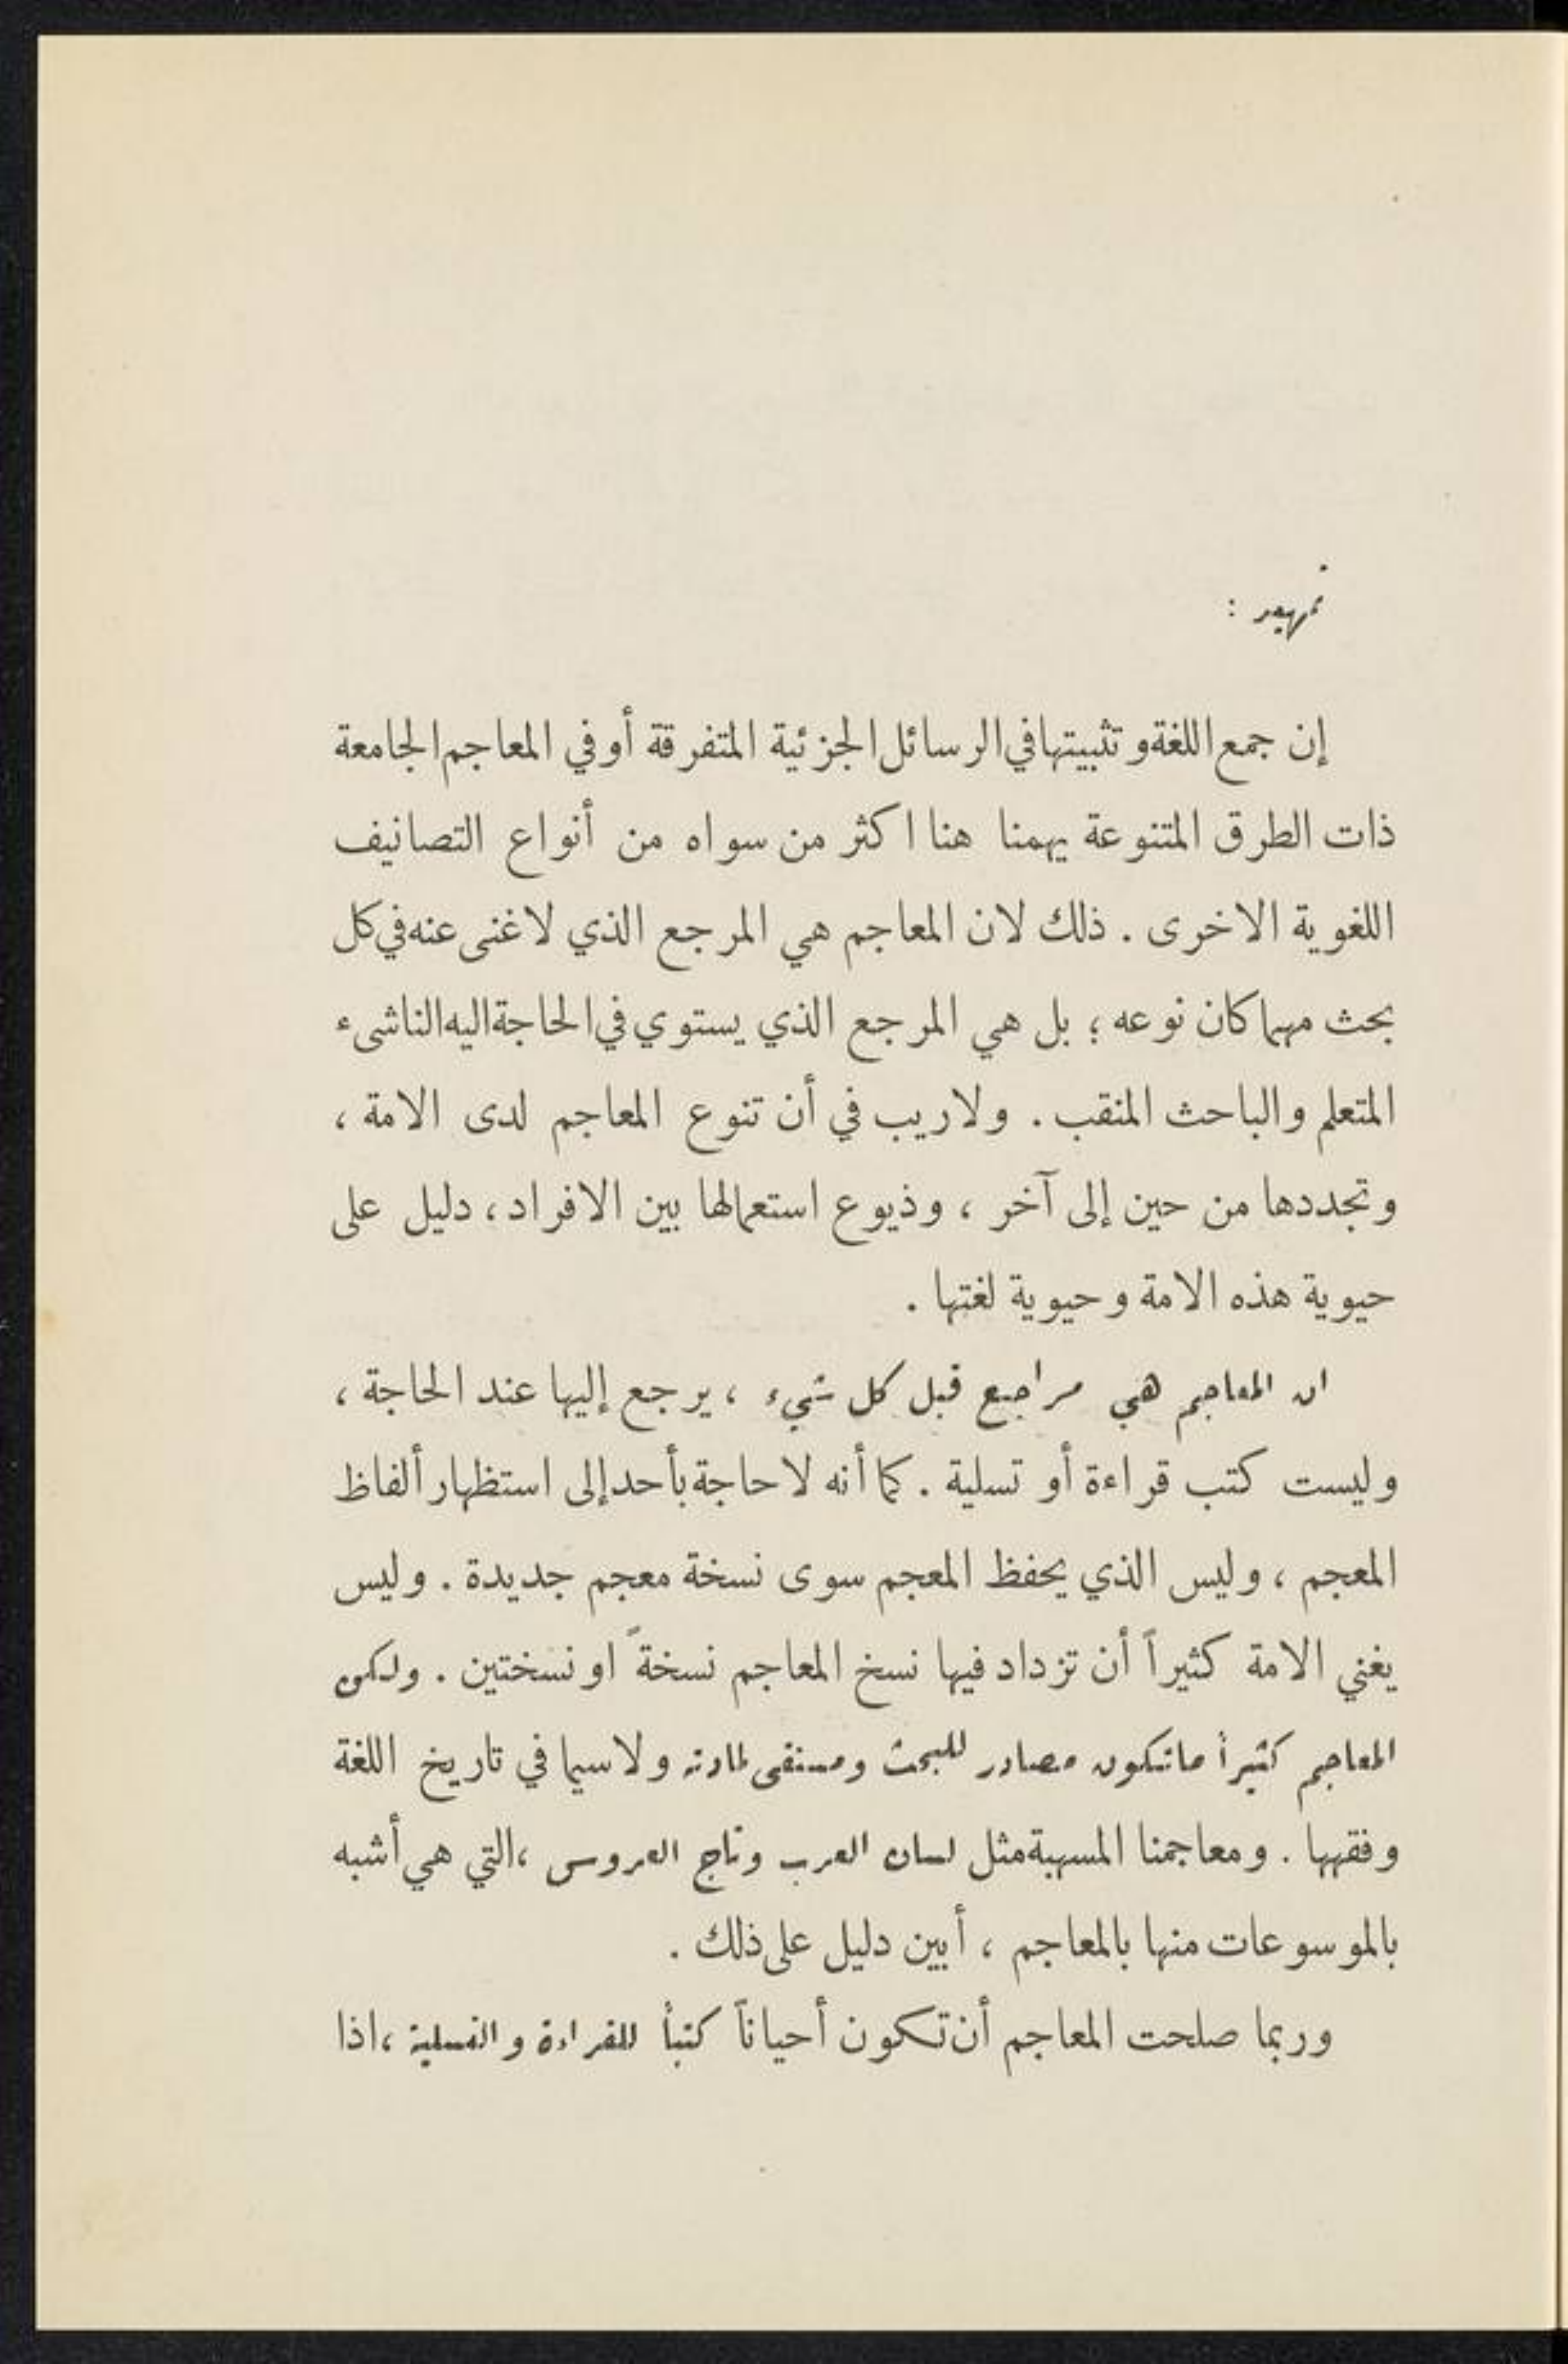 تمهيد :
إن جمع اللغة وتثبيتها في الرسائل الجزئية المتفرقة أو في المعاجم الجامعة
ذات الطرق المتنوعة يهمنا هنا اكثر من سواه من أنواع التصانيف
اللغوية الاخرى . ذلك لان المعاجم هي المرجع الذي لا غنى عنه في كل
بحث مهما كان نوعه ؛ بل هي المرجع الذي يستوي في الحاجة اليه الناشىء
المتعلم والباحث المنقب . ولا ريب في أن تنوع المعاجم لدى الامة ،
وتجددها من حين إلى آخر ، وذيوع استعمالها بين الافراد ، دليل على
حيوية هذه الامة وحيوية لغتها .
ان المعاجم هي مراجع قبل كل شيء ، يرجع إليها عند الحاجة ،
وليست كتب قراءة أو تسلية . كما أنه لا حاجة بأحد إلى استظهار ألفاظ
المعجم ، وليس الذي يحفظ المعجم سوى نسخة معجم جديدة . وليس
يغني الامة كثيراً أن تزداد فيها نسخ المعاجم نسخةً او نسختين . ولكن
المعاجم كثيراً ماتكون مصادر للبحث ومستقى لمادته ولا سيما في تاريخ اللغة
وفقهها . ومعاجمنا المسهبة مثل لسان العرب وتاج العروس ، التي هي أشبه
بالموسوعات منها بالمعاجم ، أبين دليل على ذلك .
وربما صلحت المعاجم أن تكون أحياناً كتباً للقراءة والتسلية ، اذا